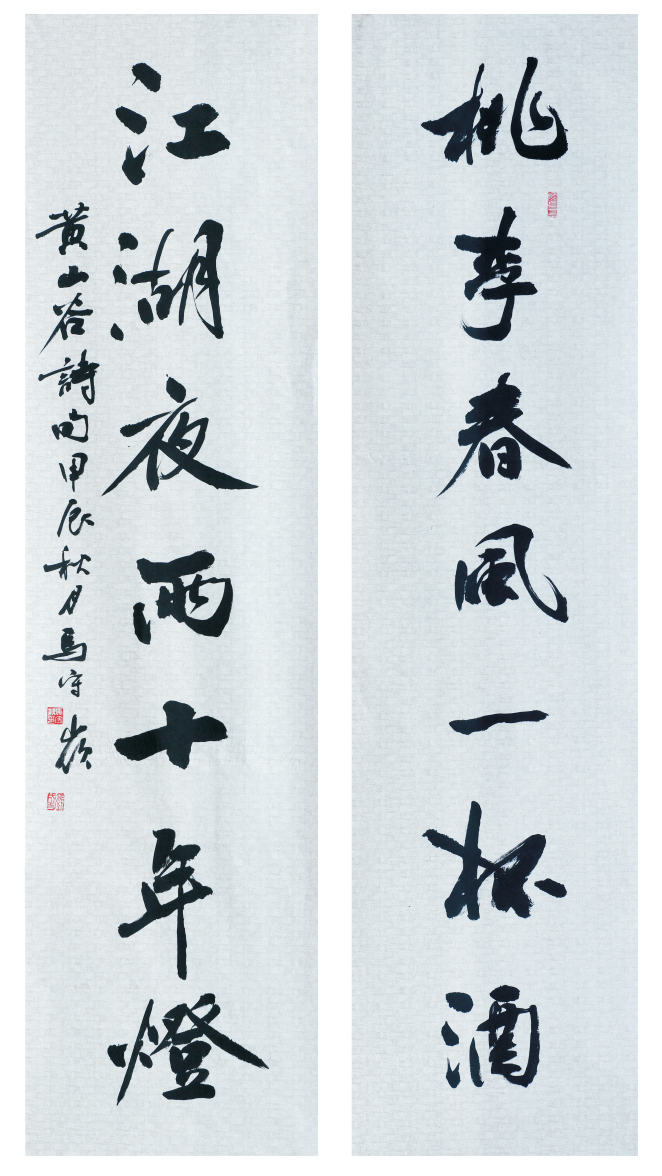 桃李春風一杯酒
江湖夜雨十年燈
黃山谷詩句甲辰秋月馬守嶺